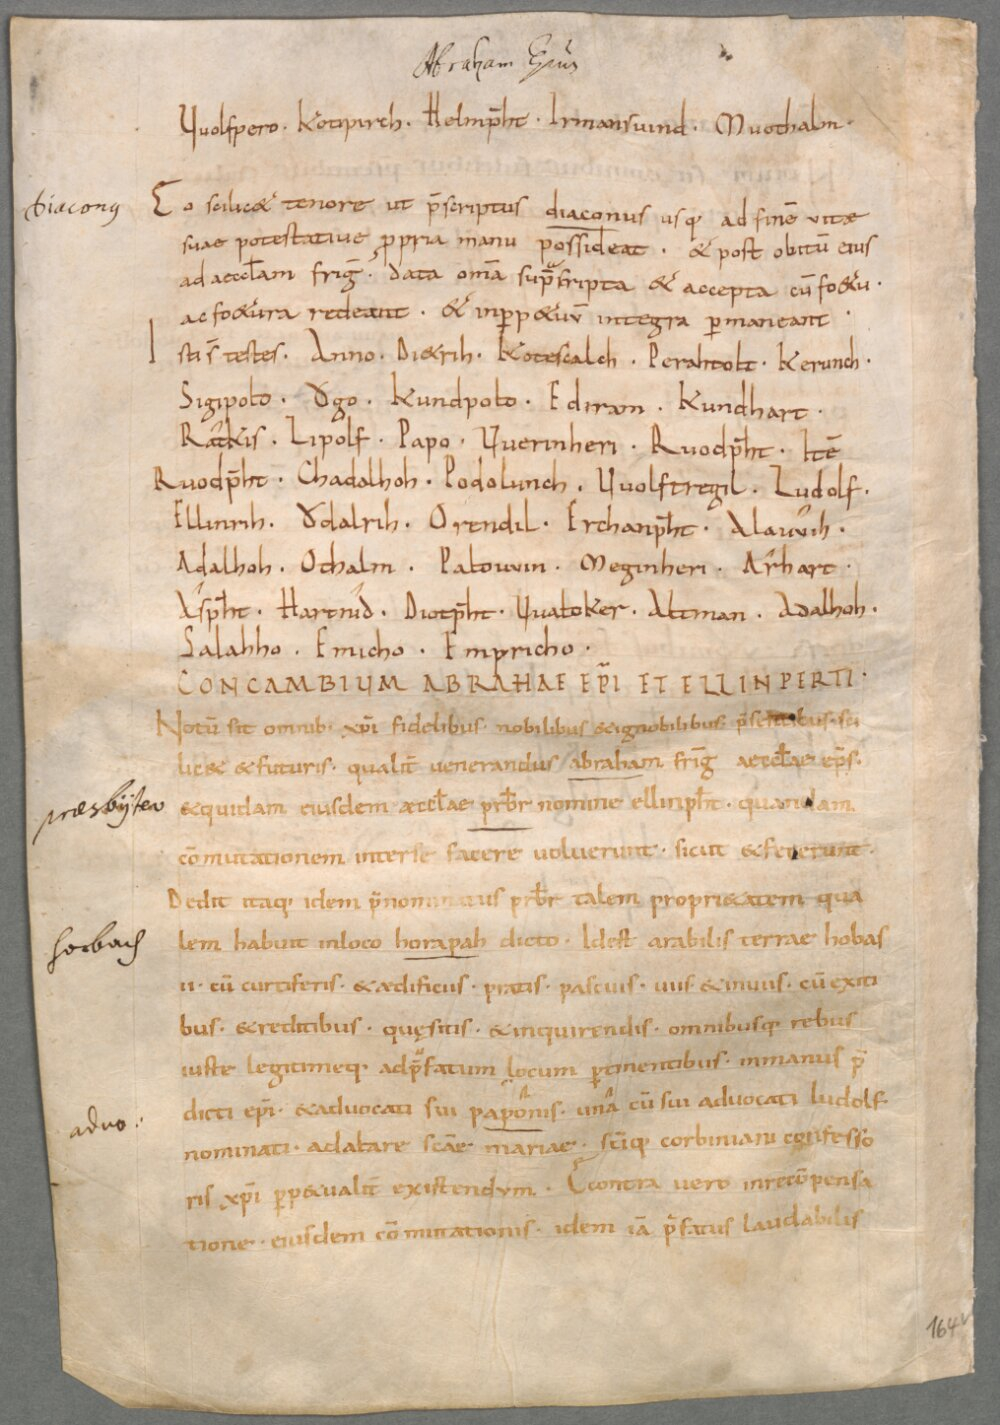 Abraham Ep̃us
Uuolfpero · Kotipirch · Helmp̃ht · Irmansuuind · Muothalm ·
diaconus
Eo scilic& tenore ut p̃scriptus diaconus usq; ad finē vitae
suae potestative ꝓpria manu possideat · & post obitū eius
ad aeccłam frig̃ · data om̃a sup̃scripta & accepta cū fo&u ·
ac fo&ura redeant · & inꝑp&uū integra ꝑmaneant ·
Isti s̃ testes · Anno · Di&rih · Kotescalch · Perahtolt · Kerunch ·
Sigipolo · Ogo · Kundpolo · Ediram · Kundhart ·
Ratkis · Lipolf · Papo · Uuerinheri · Ruodp̃ht · Itē
Ruodp̃ht · Chadalhoh · Podolunch · Uuolftregil · Ludolf ·
Ellinrih · Odalrih · Orendil · Erchanp̃ht · Alauuih ·
Adalhoh · Othalm · Paltouuin · Meginheri · Arhart ·
Asp̃ht · Hartnid · Diotp̃ht · Uualtker · Altman · Adalhoh ·
Salahho · Emicho · Empricho ·
CONCAMBIUM ABRAHAE EP̃I ET ELLINPERTI ·
Notū sit omnib; xp̃i fidelibus · nobilibus & ignobilibus · p̃sentibus · sci
lic& & futuris · qualit̃ venerandus abraham frig̃ aeccłae ep̃s ·
presbÿter
& quidam eiusdem aeccłae prb̃r nomine ellinp̃ht · quandam
cōmutationem inter se facere voluerunt · sicut & fecerunt ·
Dedit itaq; idem p̃nominatus prb̃r talem propri&atem qua
horbach
lem habuit in loco horapah dicto · Id est arabilis terrae hobas
ii · cū curtiferis · & aedificiis · pratis · pascuis · viis & inviis · cū exiti
bus · & reditibus · quęsitis · & inquirendis · omnibusq; rebus
iuste legitimeq; ad p̃fatum locum ꝑtinentibus · in manus p̃
advo:
dicti ep̃i · & advocati sui paponis · una cū sui advocati ludolf
nominati · ad altare sc̃ae mariae · sc̃iq; corbiniani confesso
ris xp̃i ꝑp&ualit̃ existendum · Econtra vero in recōpensa
tione · eiusdem cōmutationis · idem iā p̃fatus laudabilis
164v